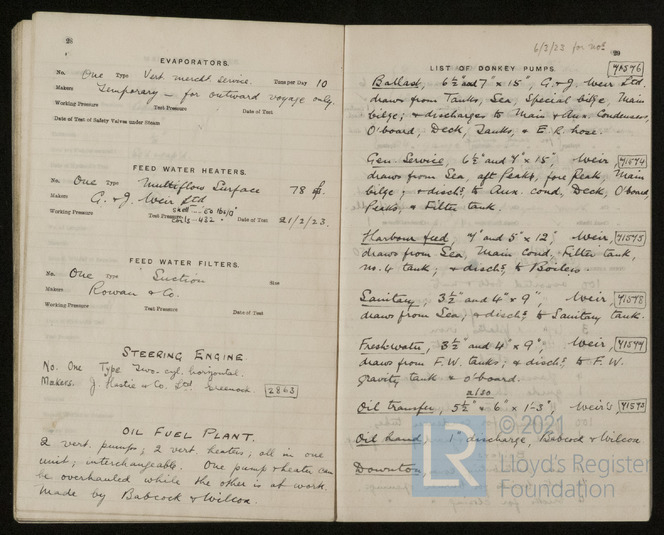 28
EVAPORATORS.
No. One Type Vert. mercht service. Tons per Day 10
Makers Temporary – for outward voyage only.
Working Pressure Test Pressure Date of Test
Date of Test of Safety Valves under Steam
FEED WATER HEATERS.
No. One Type Multiflow Surface 78
Makers G. & J. Weir Ltd
Working Pressure Test Pressure Shell - 60 lbs/□" Coils - 432 " Date of Test 21/2/23.
FEED WATER FILTERS.
No. One Type Suction Size
Makers Rowan & Co.
Working Pressure Test Pressure Date of Test
STEERING ENGINE
No. One Type Two-cyl. horizontal.
Makers. J. Hastie & Co. Ltd. Greenock. 2863
OIL FUEL PLANT.
2 vert. pumps, 2 vert. heaters, all in one
unit; interchangeable. One pump & heater can
be overhauled while the other is at work.
Made by Babcock & Wilcox.
6/3/23 for nos
29
LIST OF DONKEY PUMPS
Ballast, 6½" and 7" × 15", G. & J. Weir Ltd. 71576
draws from Tanks, Sea, Special bilge, Main
bilge; & discharges to Main & Aux. Condensers,
O'board, Deck, Tanks, & E.R. hose.
Gen. Service, 6½" and 7" × 15", Weir, 71574
draws from Sea, aft Peak, fore Peak, Main
bilge; & disch. to Aux. cond, Deck, O'board,
Peaks, & Filter tank.
Harbour feed, 7" and 5" × 12", Weir, 71575
draws from Sea, Main Cond. Filter tank,
no. 4 tank; & disch. to Boilers.
Sanitary, 3½" and 4" × 9", Weir, 71578
draws from Sea; & disch. to Sanitary tank.
Freshwater, 3½" and 4" × 9", Weir, 71577
draws from F.W. tanks; & disch. to F.W.
gravity tank & o'board.
also
Oil transfer, 5½" × 6" × 1'-3", Weir's 71573
Oil hand, 1" discharge, Babcock & Wilcox
Downton,
© 2021
LR
Lloyd's Register
Foundation